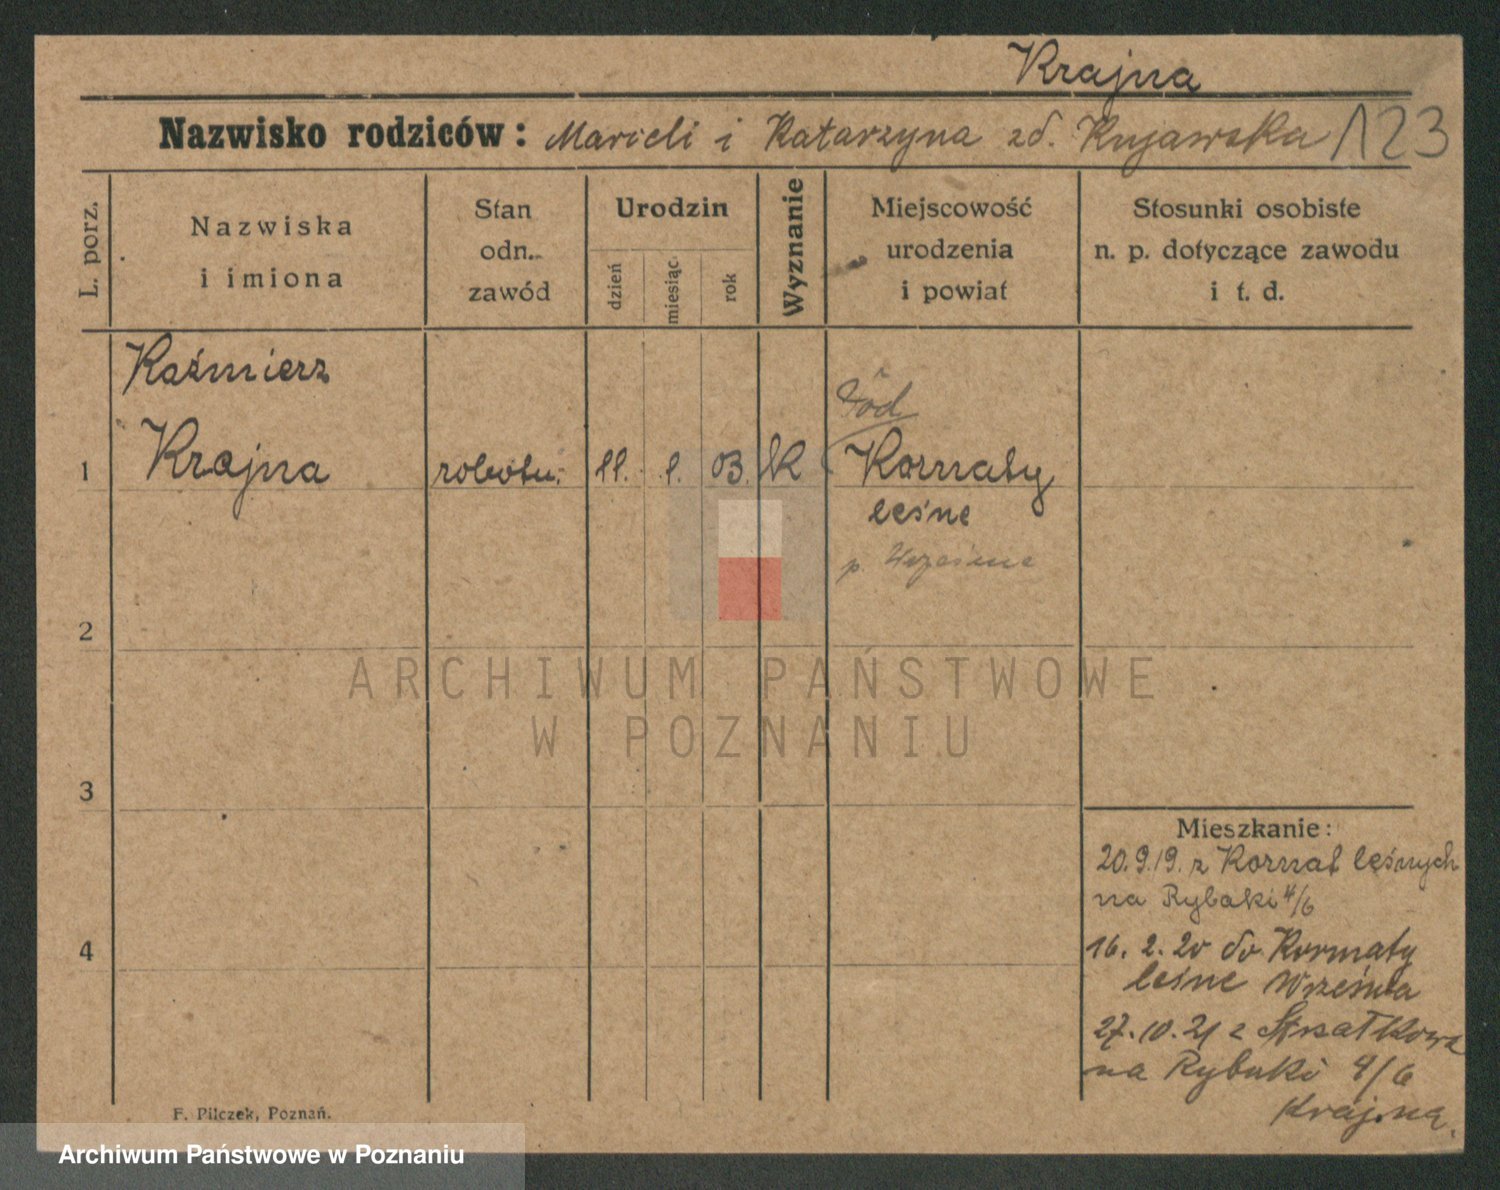 Krajna
Nazwisko rodziców: i Katarzyna zd. Kujawska 123
L. porz.
Nazwiska
i imiona
Stan
odn.
zawód
Urodzin
dzień
miesiąc
rok
Wyznanie
Miejscowość
urodzenia
i powiat
Stosunki osobiste
n. p. dotyczące zawodu
i t. d.
Kaźmierz
1 Krajna robotn. 11. 1. 03. k Kornaty
leśne
p. Września
2
3
4
ARCHIWUM PAŃSTWOWE
W POZNANIU
Mieszkanie:
20.9.19. z Kornat leśnych
na Rybaki 4/6
16. 2. 20 do Kornaty
leśne Września
27.10.21 z Strzałkowa
na Rybaki 4/6
Krajna.
F. Pilczek, Poznań.
Archiwum Państwowe w Poznaniu